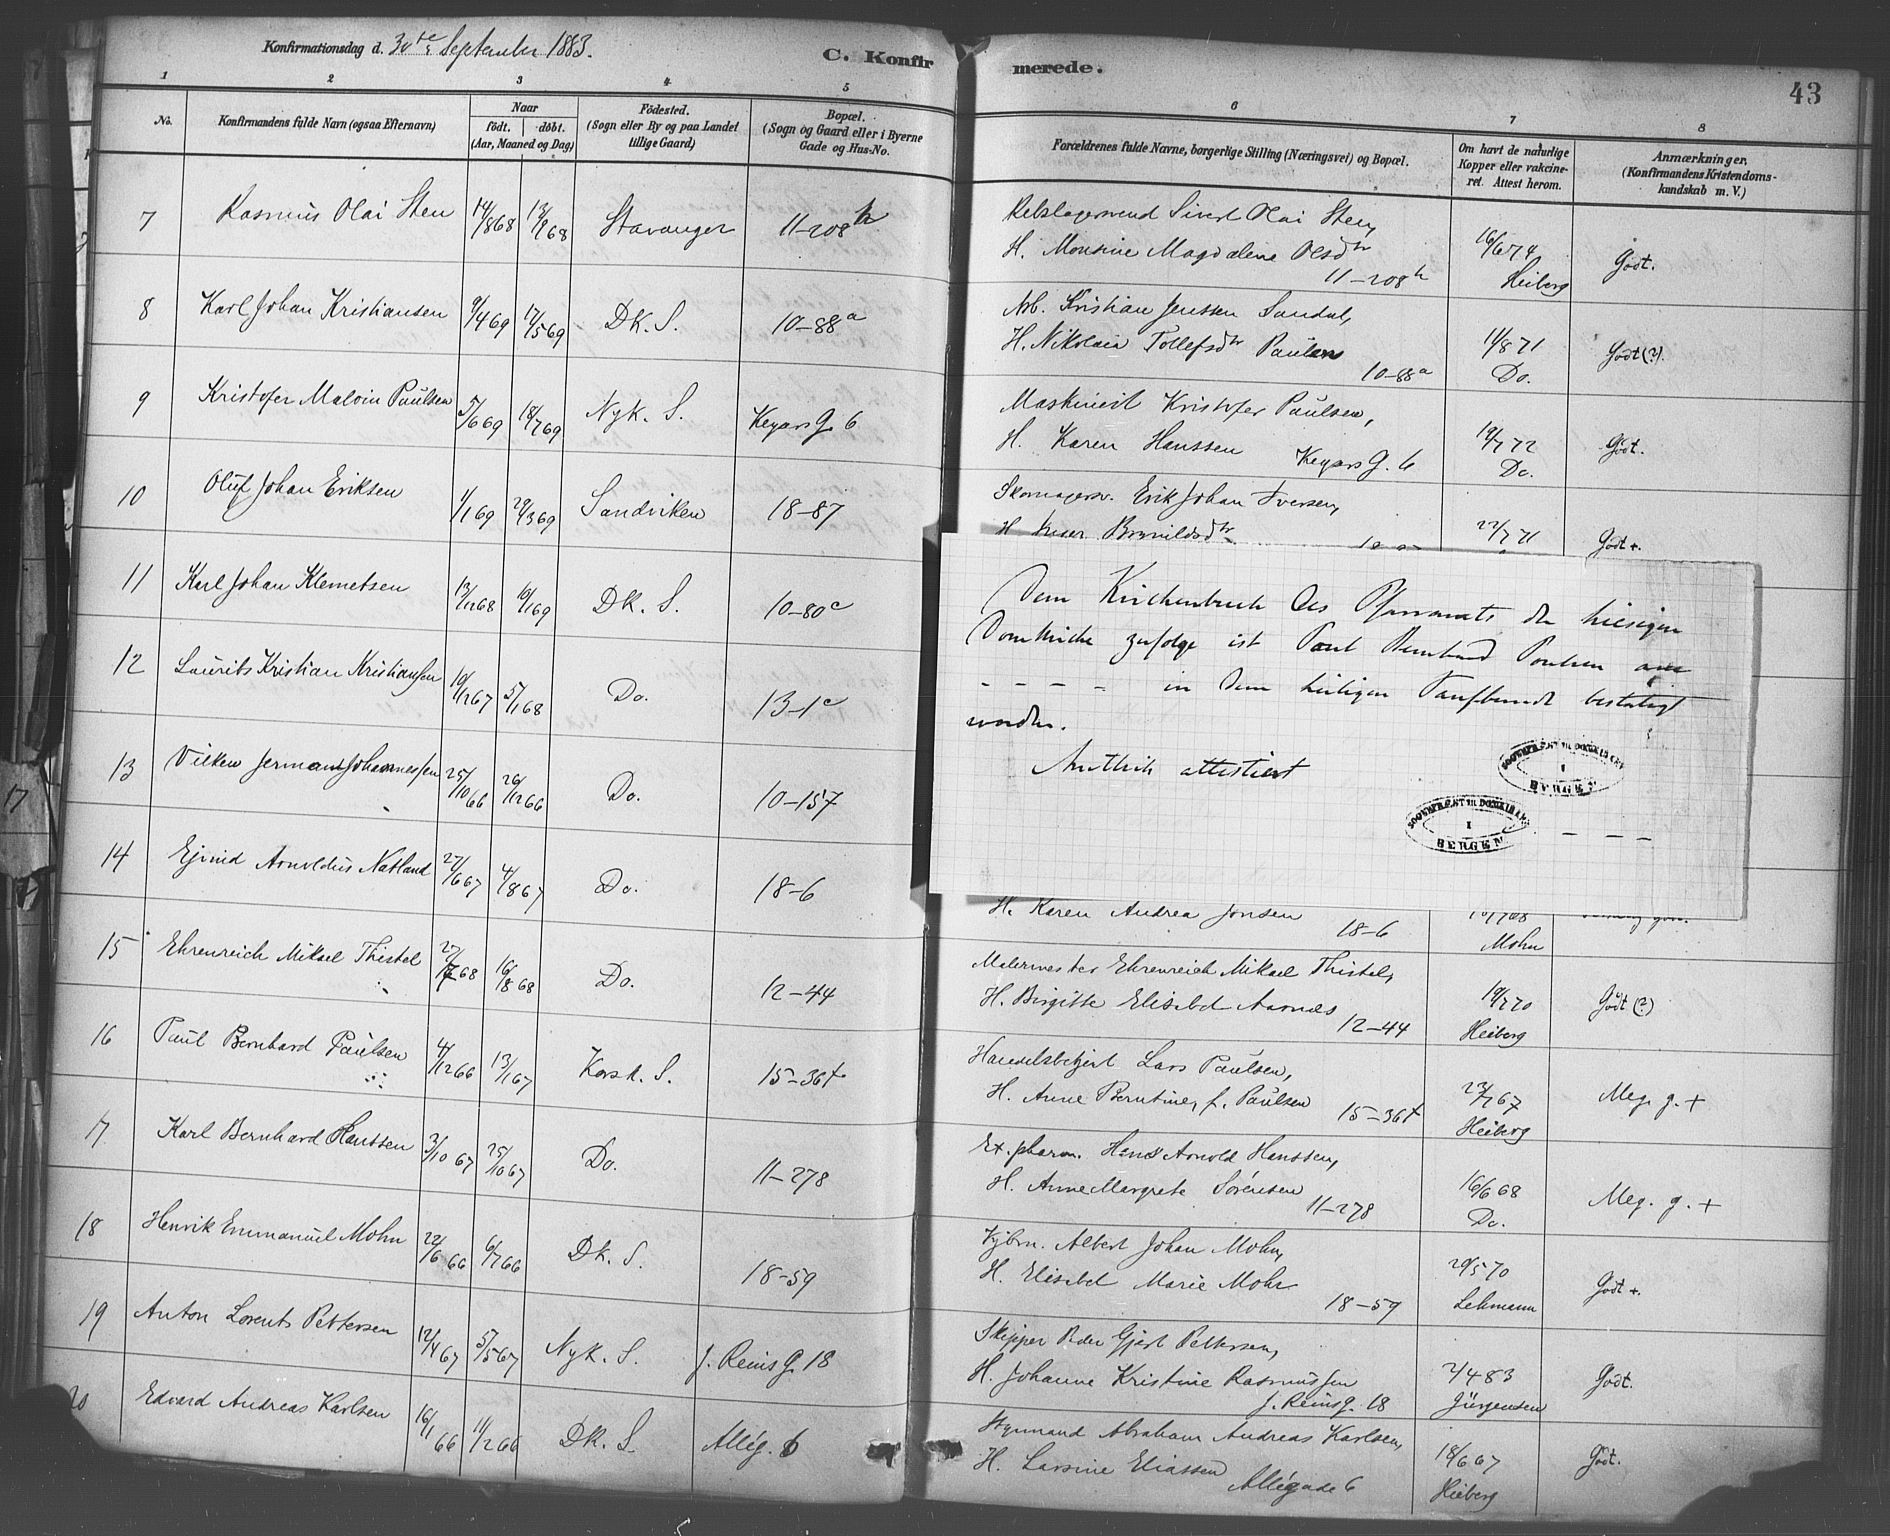 Konfirmationsdag d. 30te September 1883.
C. Konfirmerede.
43
1 2 3 4 5 6 7 8
No.
Konfirmandens fulde Navn (ogsaa Efternavn)
Naar
født. døbt.
(Aar, Maaned og Dag)
Fødested.
(Sogn eller By og paa Landet
tillige Gaard)
Bopæl.
(Sogn og Gaard eller i Byerne
Gade og Hus-No.
Forældrenes fulde Navne, borgerlige Stilling (Næringsvei) og Bopæl.
Om havt de naturlige
Kopper eller vakcine-
ret. Attest herom.
Anmærkninger.
(Konfirmandens Kristendoms-
kundskab m. V.)
7 Rasmus Olai Sten 14/8 68 13/9 68 Stavanger 11-208 h
Rebslagersvend Sivert Olai Sten,
H. Monsine Magdalena Olsdtr
11-208 h 16/6 74 Heiberg Godt.
8 Karl Johan Kristiansen 9/4 69 17/5 69 DK. S. 10-88 a
Arb. Kristian Jenssen Sandal,
H. Nikolaia Tollefsdtr Paulsen
10-88 a 11/8 71 Do. Godt (?).
9 Kristofer Malvin Paulsen 5/6 69 18/7 69 Nyk. S. Keyars G. 6
Maskinist Kristofer Paulsen,
H. Karen Hanssen Keyars G. 6 19/7 72 Do. Godt.
10 Oluf Johan Eriksen 1/1 69 29/3 69 Sandviken 18-87
Skomagersv. Erik Johan Iversen,
H. Brynildsdtr 22/7 71 Godt +.
11 Karl Johan Klemetsen 13/12 68 10/1 69 DK. S. 10-80 c
12 Laurits Kristian Kristiansen 10/12 67 5/1 68 Do. 13-1 c
13 Vilken Jerman Johannessen 25/10 66 26/12 66 Do. 10-157
14 Ejvind Arnoldus Natland 27/6 67 4/8 67 Do. 18-6
Dem Kirchenbuch des Pfarramts der hiesigen
Domkirche zufolge ist Paul Bernhard Poulsen am
- - - - in dem heiligen Taufbunde bestätigt
worden.
Amtlich attestiert
SOGNEPRÆST TIL DOMKIRKEN
I
BERGEN
SOGNEPRÆST TIL DOMKIRKEN
I
BERGEN
- - - -
H. Karen Andrea Jonsen 18-6 Mohn
15 Ehrenreich Mikael Thistel 27/7 68 16/8 68 Do. 12-44
Malermester Ehrenreich Mikael Thistel,
H. Birgitte Elisabet Aarnes
12-44 19/7 70 Heiberg Godt (?)
16 Paul Bernhard Paulsen 4/12 66 13/1 67 Korsk. S. 15-36 t
Handelsbetjent Lars Paulsen,
H. Anne Berntine, f. Paulsen 15-36 t 23/7 67 Heiberg Meg. g. +
17 Karl Bernhard Hanssen 3/10 67 25/10 67 Do. 11-278
Ex. pharm. Hans Arnold Hanssen,
H. Anne Margrete Sørensen
11-278 16/6 68 Do. Meg. g. +
18 Henrik Emmanuel Mohn 22/6 66 6/7 66 DK. S. 18-59
Kjbm. Albert Johan Mohn,
H. Elisabet Marie Mohr
18-59 20/5 70 Lehmann Godt +.
19 Anton Lorents Pettersen 12/4 67 5/5 67 Nyk. S. J. Reins G. 18
Skipper Peder Gjert Pettersen,
H. Johanne Kristine Rasmussen
J. Reins G. 18 2/4 83 Jürgensen Godt.
20 Edvard Andreas Karlsen 16/1 66 11/2 66 DK. S. Allég. 6
Styrmand Abraham Andreas Karlsen,
H. Larsine Eliassen
Allégade 6 18/6 67 Heiberg Godt.
17